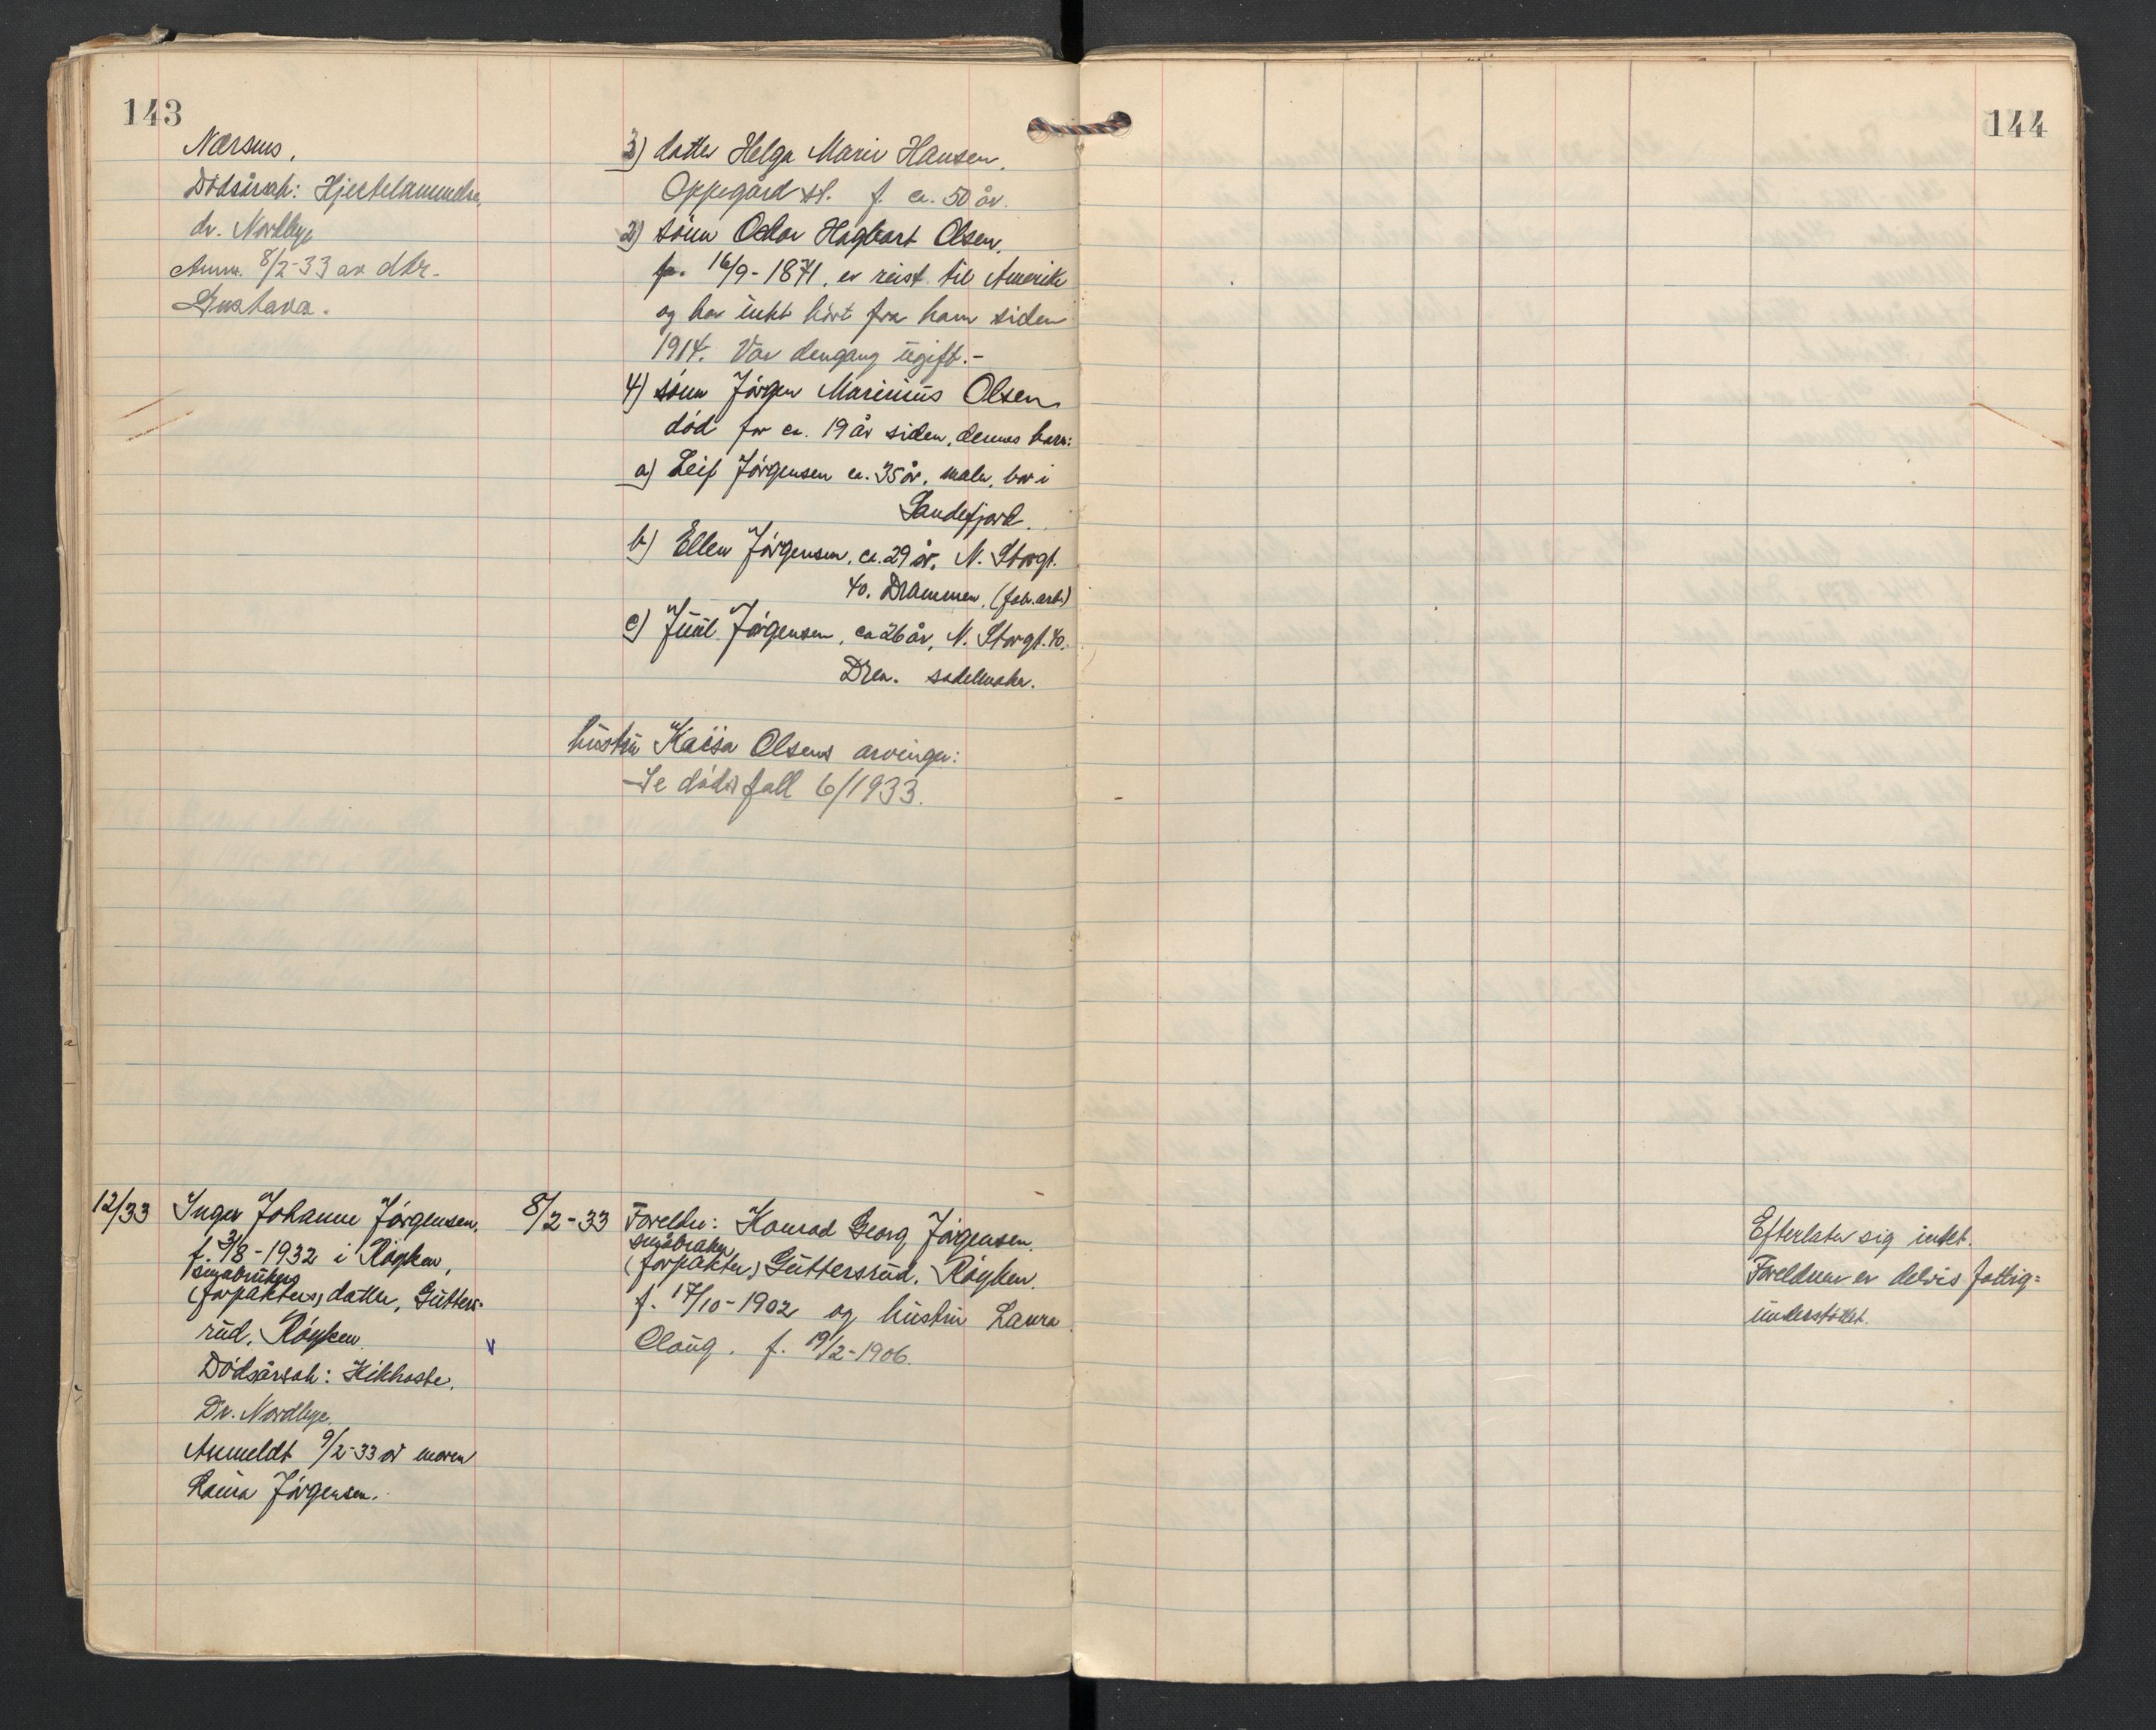 143
Nærsnes.
Dödsårsak: Hjertelammelse,
dr. Nordbye
Anm. 8/2-33 av dtr.
Gustava.
3) datter Helga Marie Hansen.
Oppegård st. f. ca. 50 år.
2) sönn Oskar Hagbart Olsen.
f. 16/9-1871, er reist til Amerika
og har intet hört fra ham siden
1914. Var dengang ugift.-
4) sönn Jörgen Marinius Olsen
död for ca. 19 år siden, dennes barn:
a) Leif Jörgensen ca. 35 år, maler, bor i
Sandefjord.
b) Ellen Jörgensen, ca. 29 år, N. Storgt.
40. Drammen. (fab.arb.)
c) Juul Jörgensen, ca 26 år, N. Storgt. 40.
Drm. sadelmaker.
hustru Kaisa Olsens arvinger:
Se dödsfall 6/1933.
12/33 Inger Johanne Jörgensen.
f. 31/8-1932 i Röyken,
småbrukers
(forpakters) datter, Gutters-
rud, Röyken.
Dödsårsak: Kikhoste.
Dr. Nordbye.
Anmeldt 9/2-33 av moren
Laura Jörgensen.
8/2-33 Foreldre: Konrad Georg Jörgensen.
småbruker
(forpakter) Guttersrud, Röyken
f. 17/10-1902 og hustru Laura
Olaug. f. 19/2-1906.
144
Efterlater sig intet.
Foreldrene er delvis fattig=
understöttet.